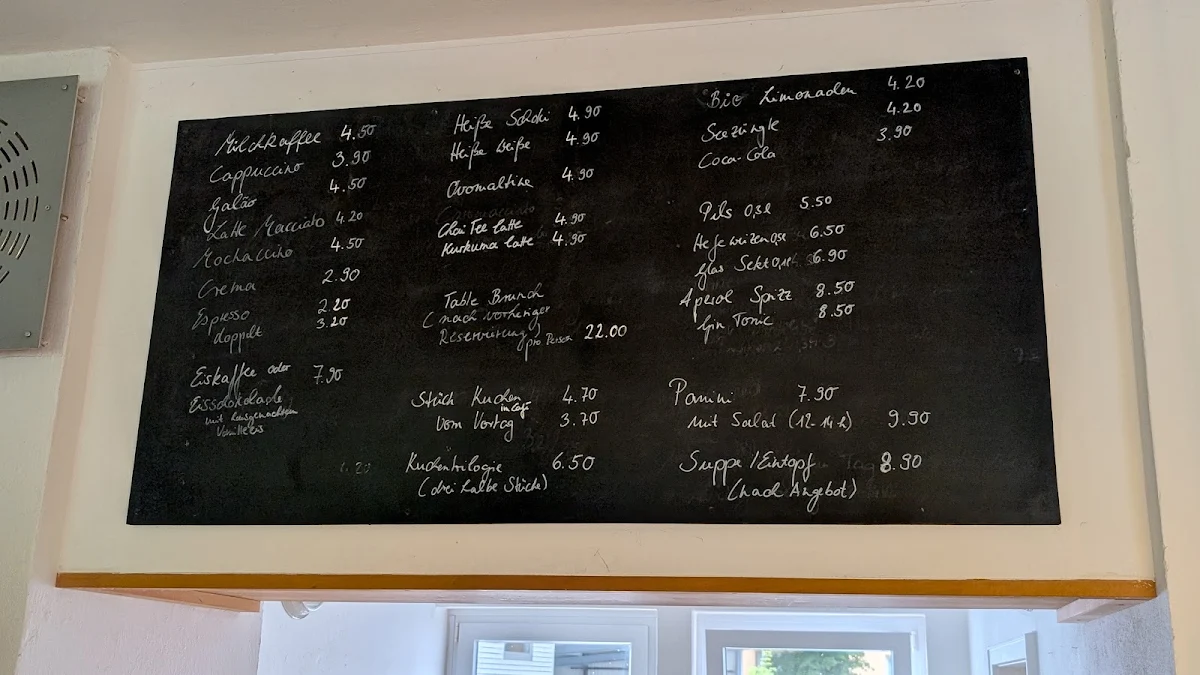 Milchkaffee 4.50
Cappuccino 3.90
Galão 4.50
Latte Macciato 4.20
Mochaccino 4.50
Crema 2.90
Espresso 2.20
doppelt 3.20
Eiskaffee oder 7.90
Eisschokolade
mit hausgemachtem
Vanilleeis
Heiße Schoki 4.90
Heiße Weiße 4.90
Ovomaltine 4.90
Chai Tee Latte 4.90
Kurkuma Latte 4.90
Table Brunch
(nach vorheriger
Reservierung)
pro Person 22.00
Stück Kuchen 4.70
im Café
Vom Vortag 3.70
Kuchentrilogie 6.50
(drei halbe Stücke)
Bio Limonaden 4.20
4.20
Coca-Cola 3.90
Pils 0,3l 5.50
Hefeweizen 6.50
Glas Sekt 6.90
Aperol Spizz 8.50
Gin Tonic 8.50
Panini 7.90
mit Salat (12-14h) 9.90
Suppe/Eintopf 8.90
(nach Angebot)